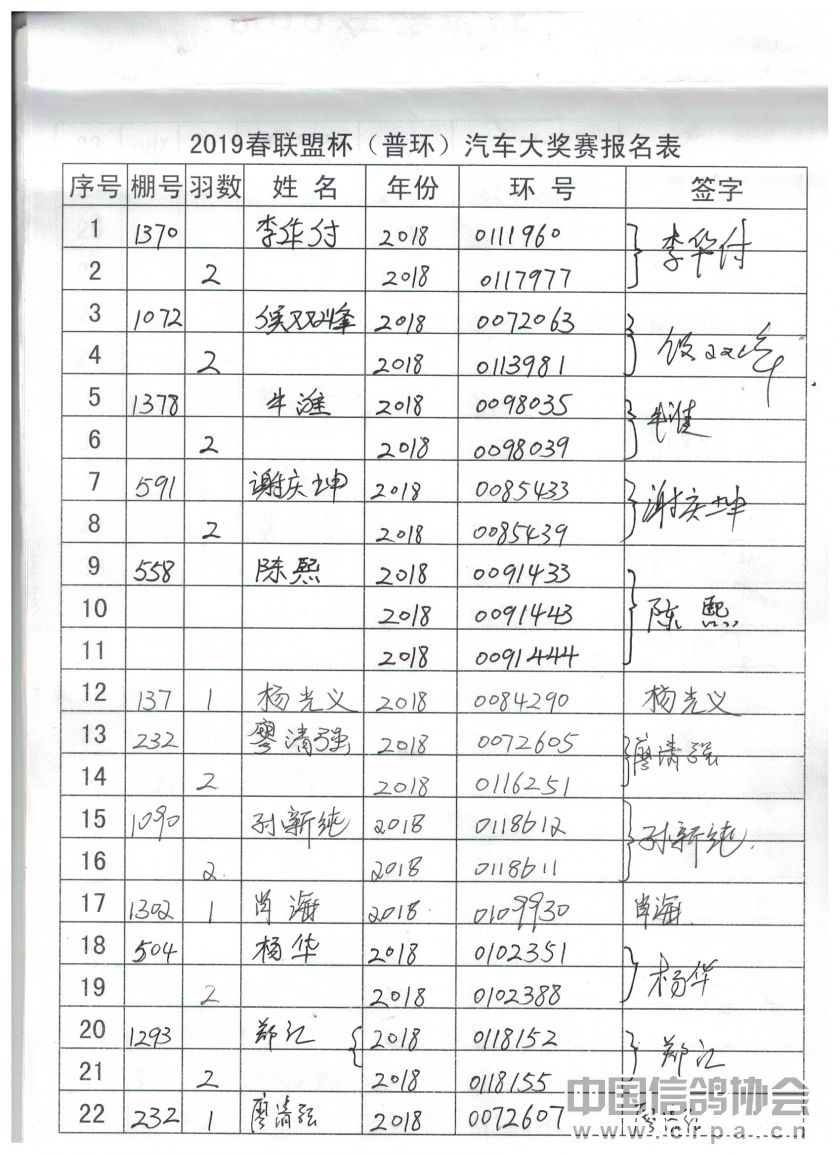 2019春联盟杯（普环）汽车大奖赛报名表
序号 棚号 羽数 姓 名 年份 环 号 签字
1 1370 李华付 2018 0111960 李华付
2 2 2018 0117977
3 1072 侯双峰 2018 0072063
4 2 2018 0113981
5 1378 牛淮 2018 0098035 牛淮
6 2 2018 0098039
7 591 谢庆坤 2018 0085433 谢庆坤
8 2 2018 0085439
9 558 陈熙 2018 0091433 陈熙
10 2018 0091443
11 2018 0091444
12 137 1 杨光义 2018 0084290 杨光义
13 232 廖清强 2018 0072605 廖清强
14 2 2018 0116251
15 1090 孙新纯 2018 0118612 孙新纯
16 2 2018 0118611
17 1302 1 肖海 2018 0109930 肖海
18 504 杨华 2018 0102351 杨华
19 2 2018 0102388
20 1293 郑江 2018 0118152 郑江
21 2 2018 0118155
22 232 1 廖清强 2018 0072607
中国信鸽协会
www.crpa.cn